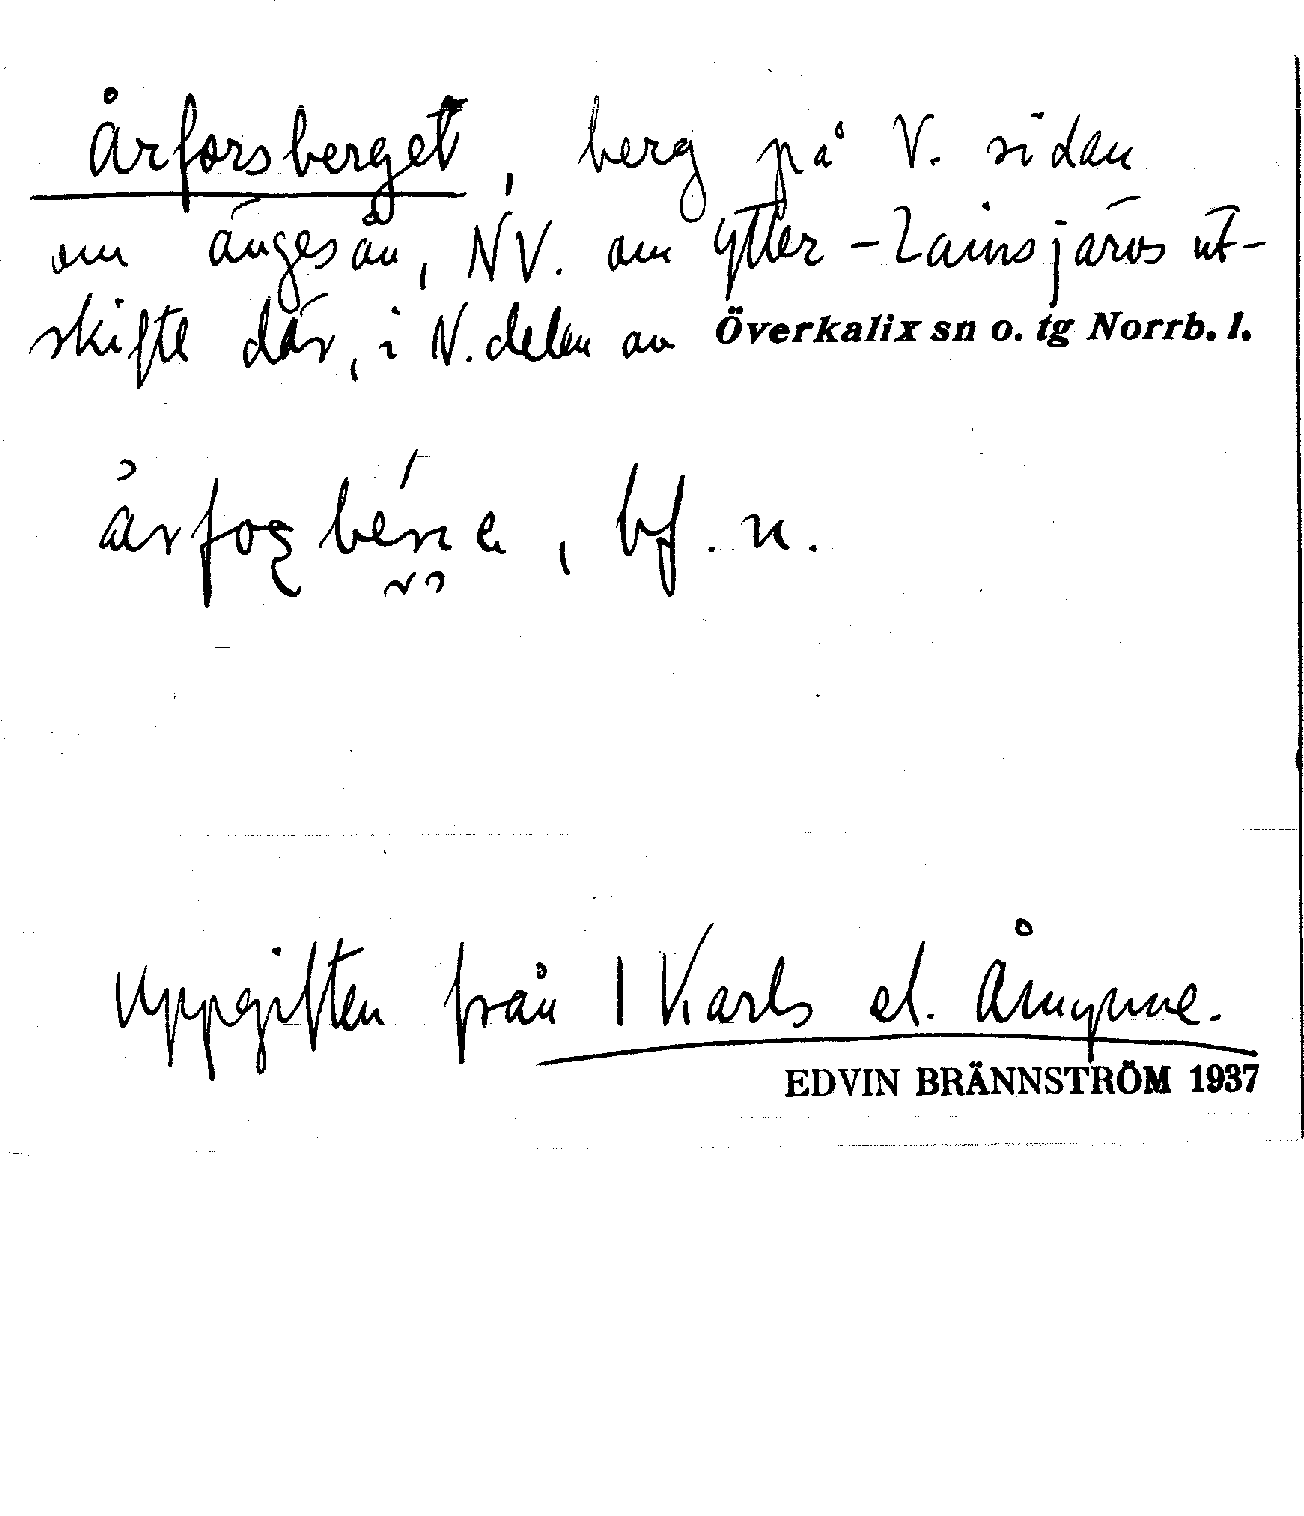 Årforsberget, berg på V. sidan
om ängesån, NV. om Ytter-Lainsjärvs ut-
skifte där, i N. delen av Överkalix sn o. tg Norrb. l.
bf. n.
Uppgiften från 1 Karls el. Åmynne.
EDVIN BRÄNNSTRÖM 1937